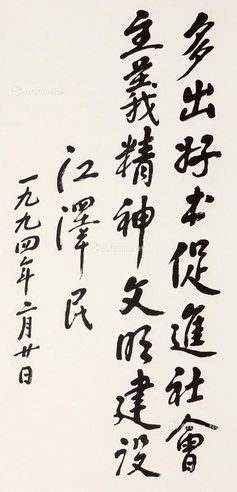 多出好书促進社會
主義精神文明建设
江澤民
一九九四年二月廿日